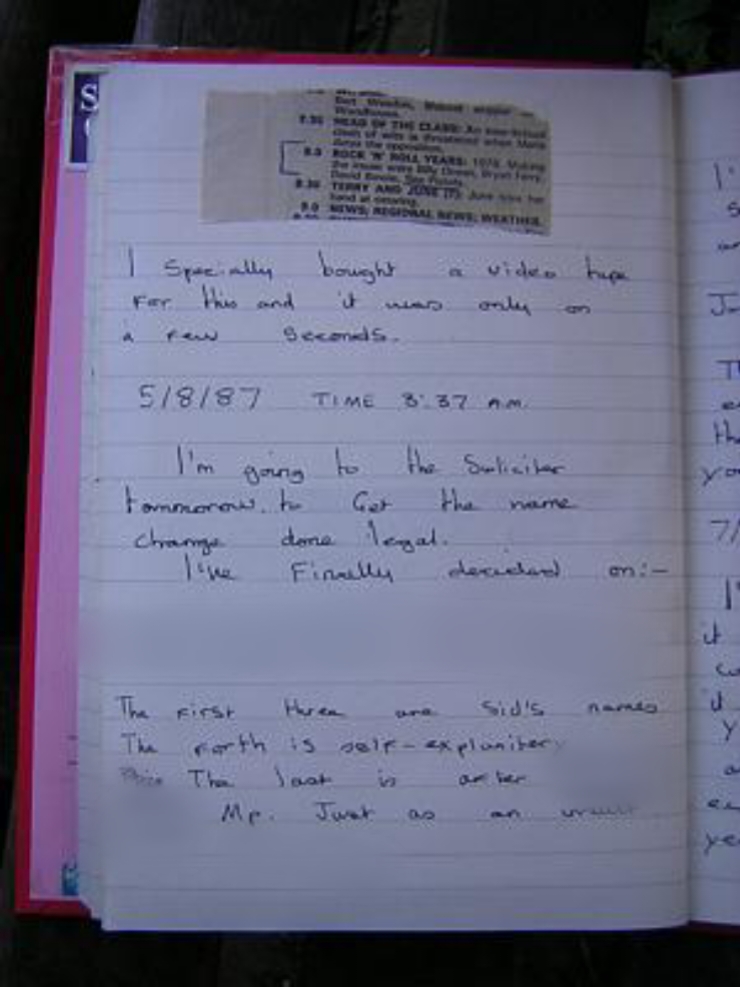 S
Bert Weedon,
Woodhouse.
7.35 HEAD OF THE CLASS: An inter-school
clash of wits is threatened when Maria
dates the opposition.
8.0 ROCK 'N' ROLL YEARS: 1974. Making
the music were Billy Bryan Ferry,
David
8.30 TERRY AND JUNE June tries her
hand at catering.
9.0 NEWS; REGIONAL NEWS; WEATHER.
I Specially bought a video tape
For this and it was only on
a Few Seconds.
5/8/87 TIME 3:37 A.M.
I'm going to the Soliciter
tommorow. to Get the name
change done legal.
I've Finally decided on:-
The First three are Sid's names
The Forth is self-explanitery
The last is after
Mp. Just as an
I'
s
Th
the
yo
7/
I'
it
y
ye